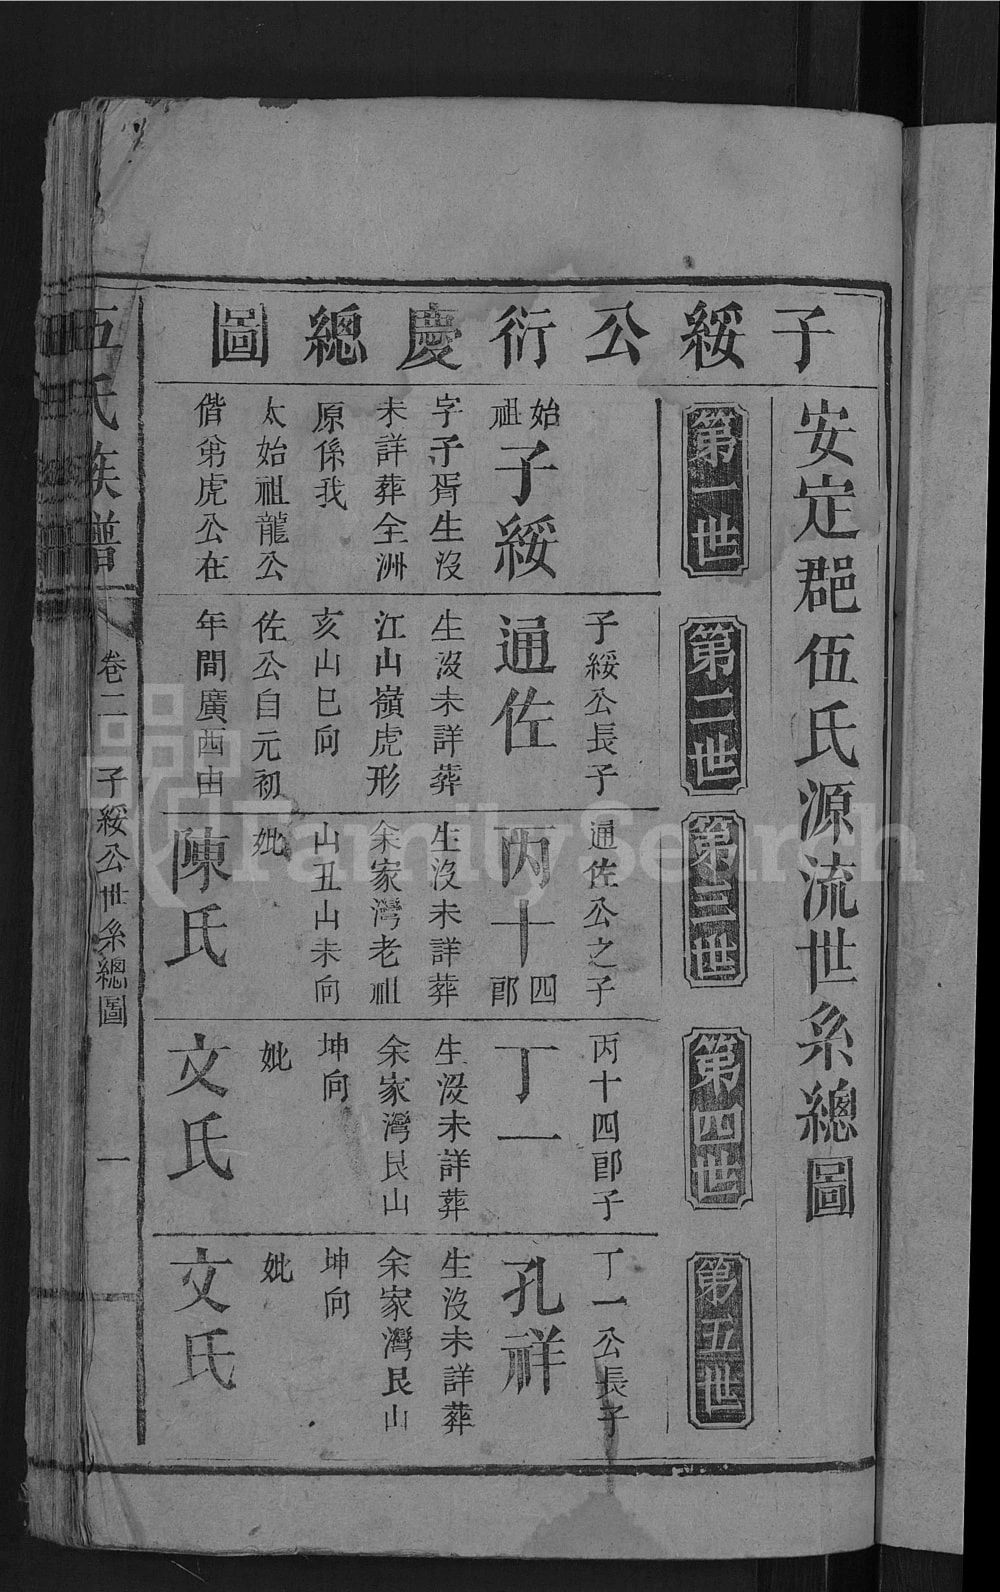 子綏公衍慶總圖
安定郡伍氏源流世系總圖
第一世
始祖
子綏
字子胥生沒
未詳葬全洲
原係我
太始祖龍公
偕弟虎公在
第二世
子綏公長子
通佐
生沒未詳葬
江山嶺虎形
亥山巳向
佐公自元初
年間廣西由
第三世
通佐公之子
丙十四郎
生沒未詳葬
余家灣老祖
山丑山未向
妣
陳氏
第四世
丙十四郎子
丁一
生沒未詳葬
余家灣艮山
坤向
妣
文氏
第五世
丁一公長子
孔祥
生沒未詳葬
余家灣艮山
坤向
妣
文氏
伍氏族譜
卷二
子綏公世系總圖
一
FamilySearch